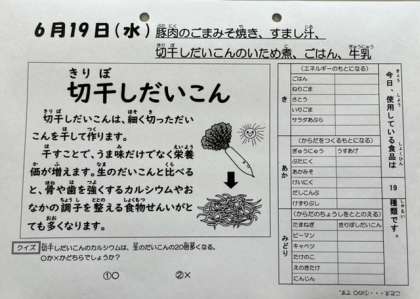 6月19日(水)
豚肉のごまみそ焼き、すまし汁、
切干しだいこんのいため煮、ごはん、牛乳
きり ぼ
切干しだいこん
切干しだいこんは、細く切っただい
こんを干して作ります。
干すことで、うま味だけでなく栄養
価が増えます。生のだいこんと比べる
と、骨や歯を強くするカルシウムやお
なかの調子を整える食物せんいがと
ても多くなります。
クイズ
切干しだいこんのカルシウムは、生のだいこんの20倍多くなる。
○か×かどちらでしょうか？
①○ ②×
今日、使用している食品は
19
種類です。
き
(エネルギーのもとになる)
ごはん
ねりごま
さとう
いりごま
サラダあぶら
あか
(からだをつくるもとになる)
ぎゅうにゅう うすあげ
ぶたにく
あかみそ
けいにく
だしこんぶ
けずりぶし
みどり
(からだのちょうしをととのえる)
たまねぎ きりぼしだいこん
ピーマン
キャベツ
たけのこ
えのきたけ
にんじん